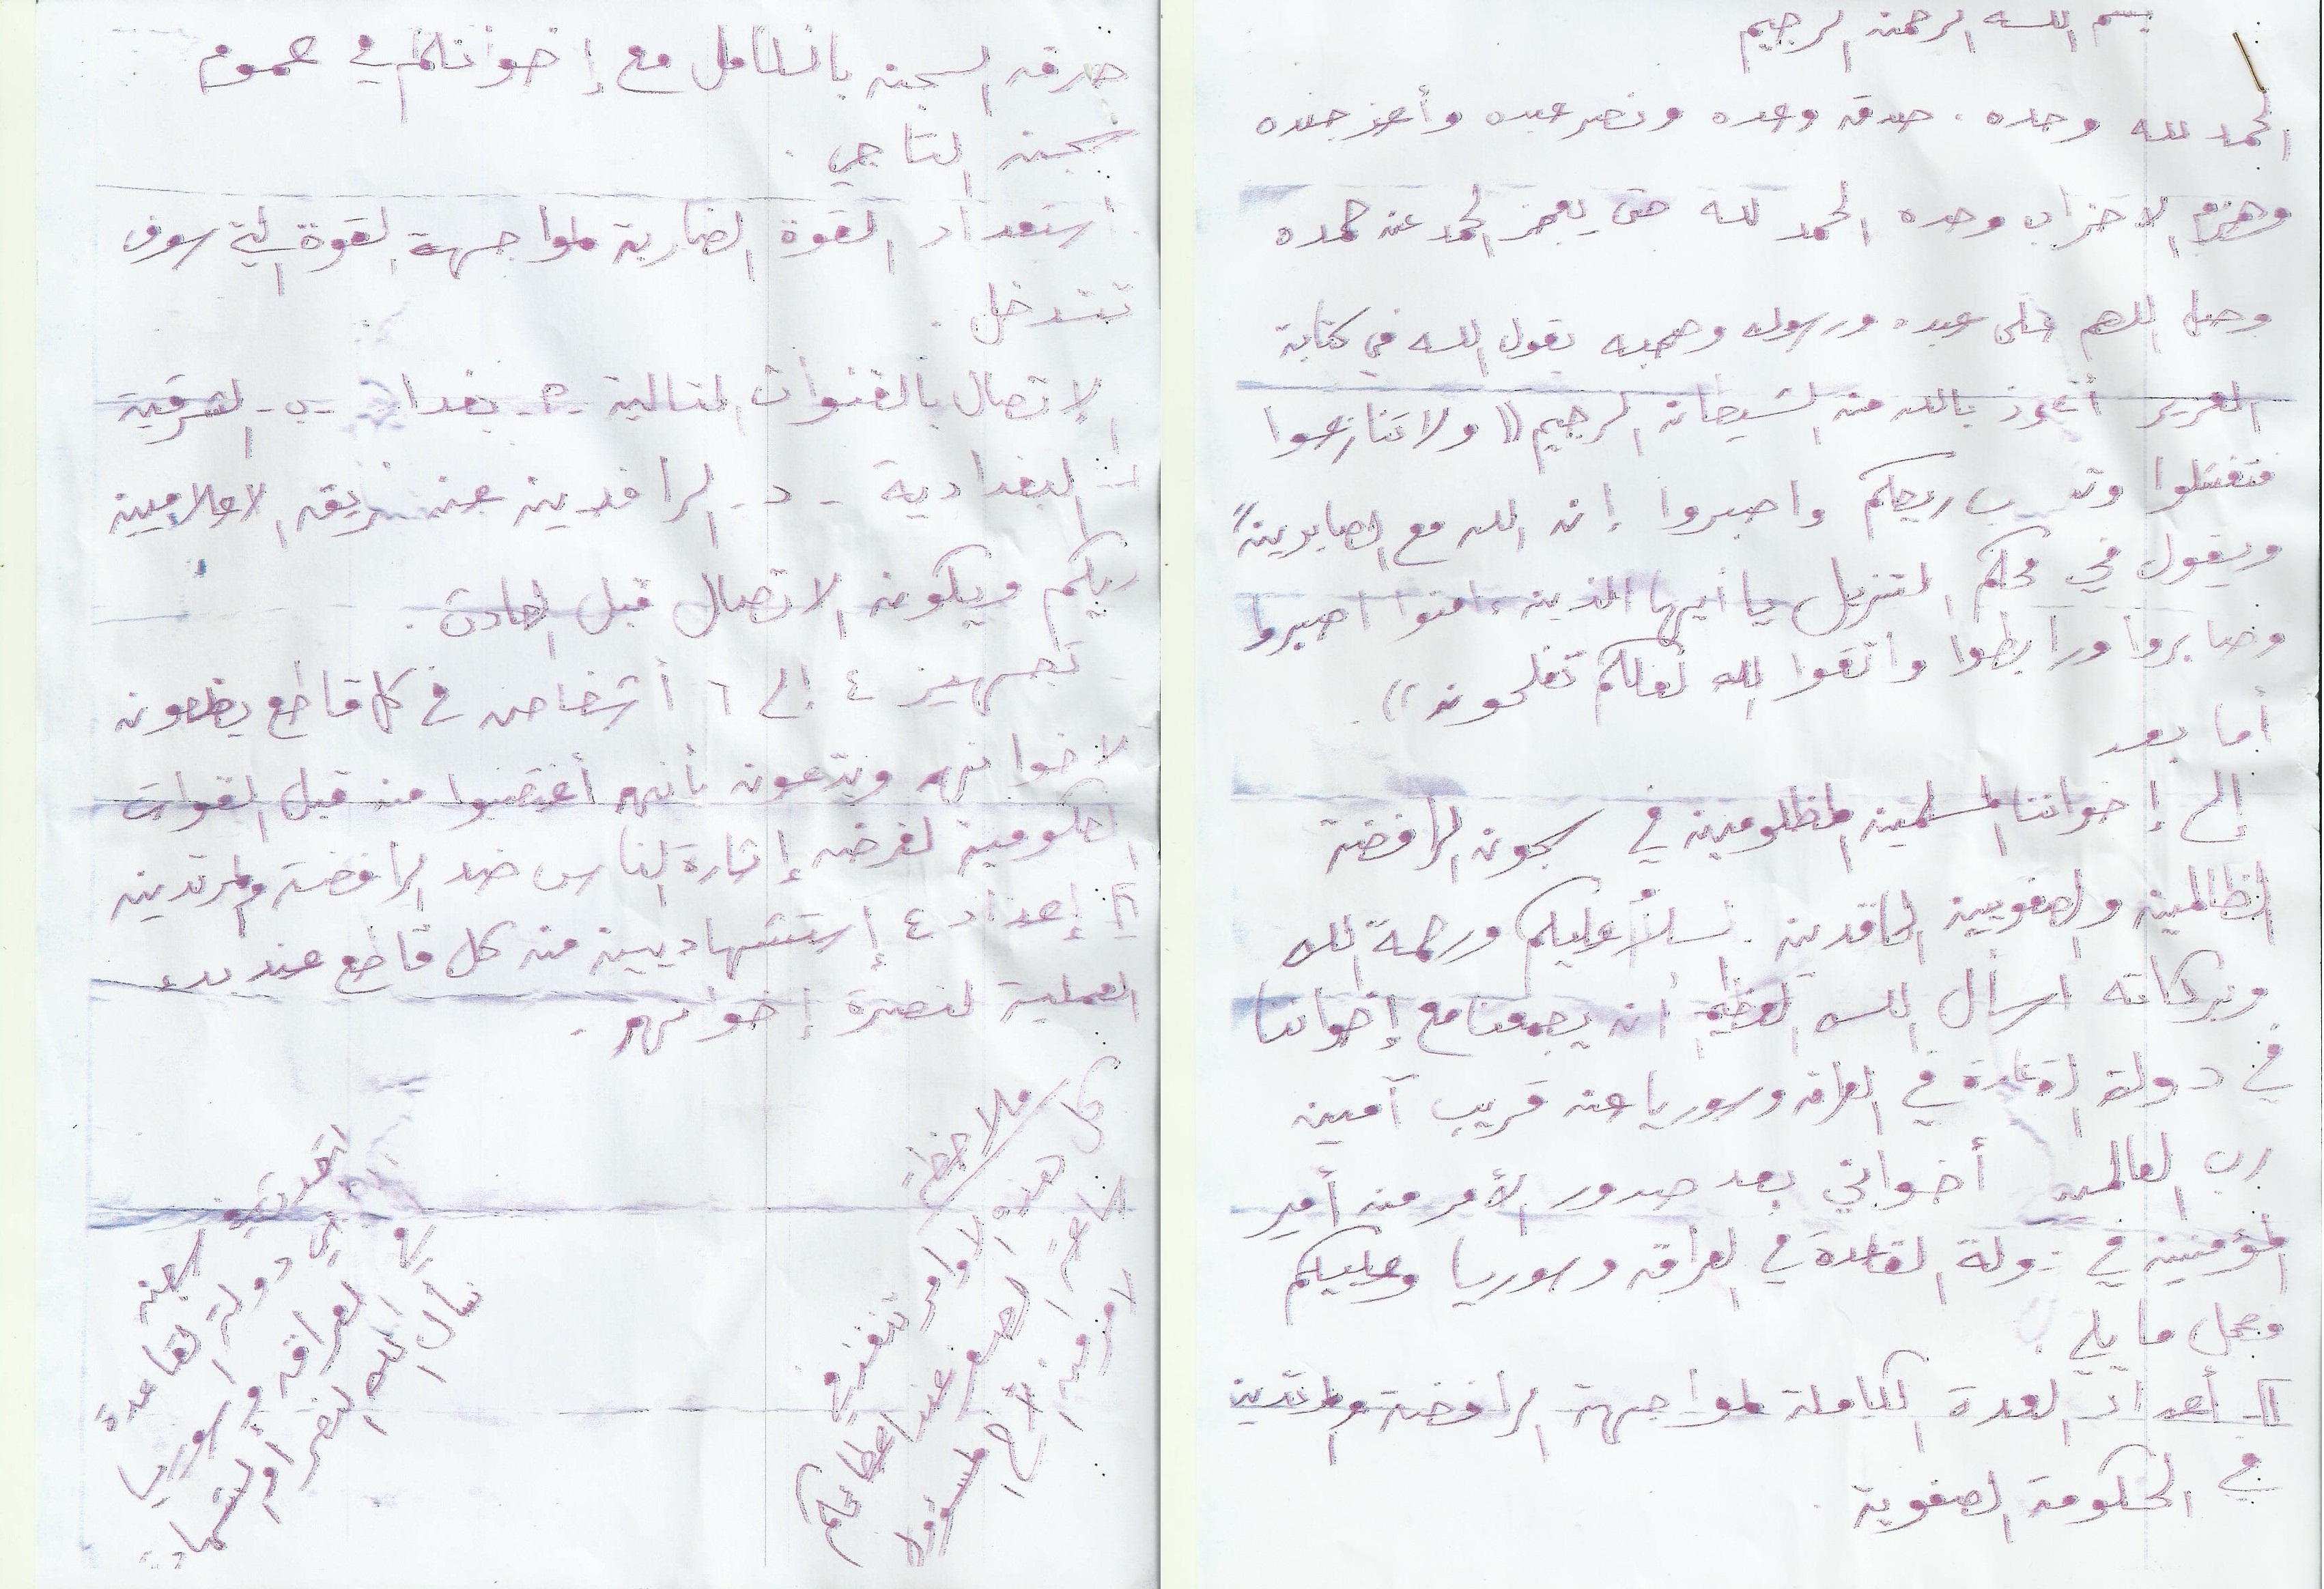 بسم الله الرحمن الرجيم
الحمد لله وحده . صدق وعده ونصر عبده وأعز جنده
وهزم الاحزاب وحده الحمد لله حتى يعجز الحمد عن حمده
وصل اللهم على عبده ورسوله وصحبه يقول الله في كتابة
العزيز أعوذ بالله من الشيطان الرجيم (( ولا تنازعوا
فتفشلوا وتذهب ريحكم واصبروا إن الله مع الصابرين"
ويقول في محكم التنزيل يا أيها الذين امنوا اصبروا
وصابروا ورابطوا واتقوا الله لعلكم تفلحون )) .
أما بعد
إلى إخواننا المسلمين المظلومين في سجون الرافضة
الظالمين والصفويين الحاقدين . السلام عليكم ورحمة الله
وبركاته اسأل الله العظيم أن يجمعنا مع إخواننا
في دولة القاعدة في العراق وسوريا عن قريب آمين
رب العالمين أخواني بعد صدور الأمر من أمير
المؤمنين في دولة القاعدة في العراق وسوريا وعليكم
وعمل ما يلي .
١- أعداد العدة الكاملة لمواجهة الرافضة والمرتدين
في الحكومة الصفوية .
حرق السجن بالكامل مع إخوانكم في عموم
سجن التاجي .
استعداد القوة الضاربة لمواجهة القوة التي سوف
تتدخل .
الإتصال بالقنوات التالية - م - بغداد - ب - الشرقية
البغدادية - د - الرافدين عن طريق الاعلاميين
ويكون الاتصال قبل الحادث .
تجهيز ٤ إلى ٦ أشخاص في كل قاطع يظهرون
لاخوانهم ويدعون بأنهم أغتصبوا من قبل القوات
الحكومية لغرض إثارة الناس ضد الرافضة والمرتدين
إعداد ٤ إستشهاديين من كل قاطع عند بدء
العملية لنصرة إخوانهم .
ملاحظة
كل هذه الاوامر تنفذ في
ساعة الصفر عند اعطائكم
الامر من الأخ المسؤول
السجن
في دولة القاعدة
في العراق وسوريا
نسأل الله النصر أو الشهادة